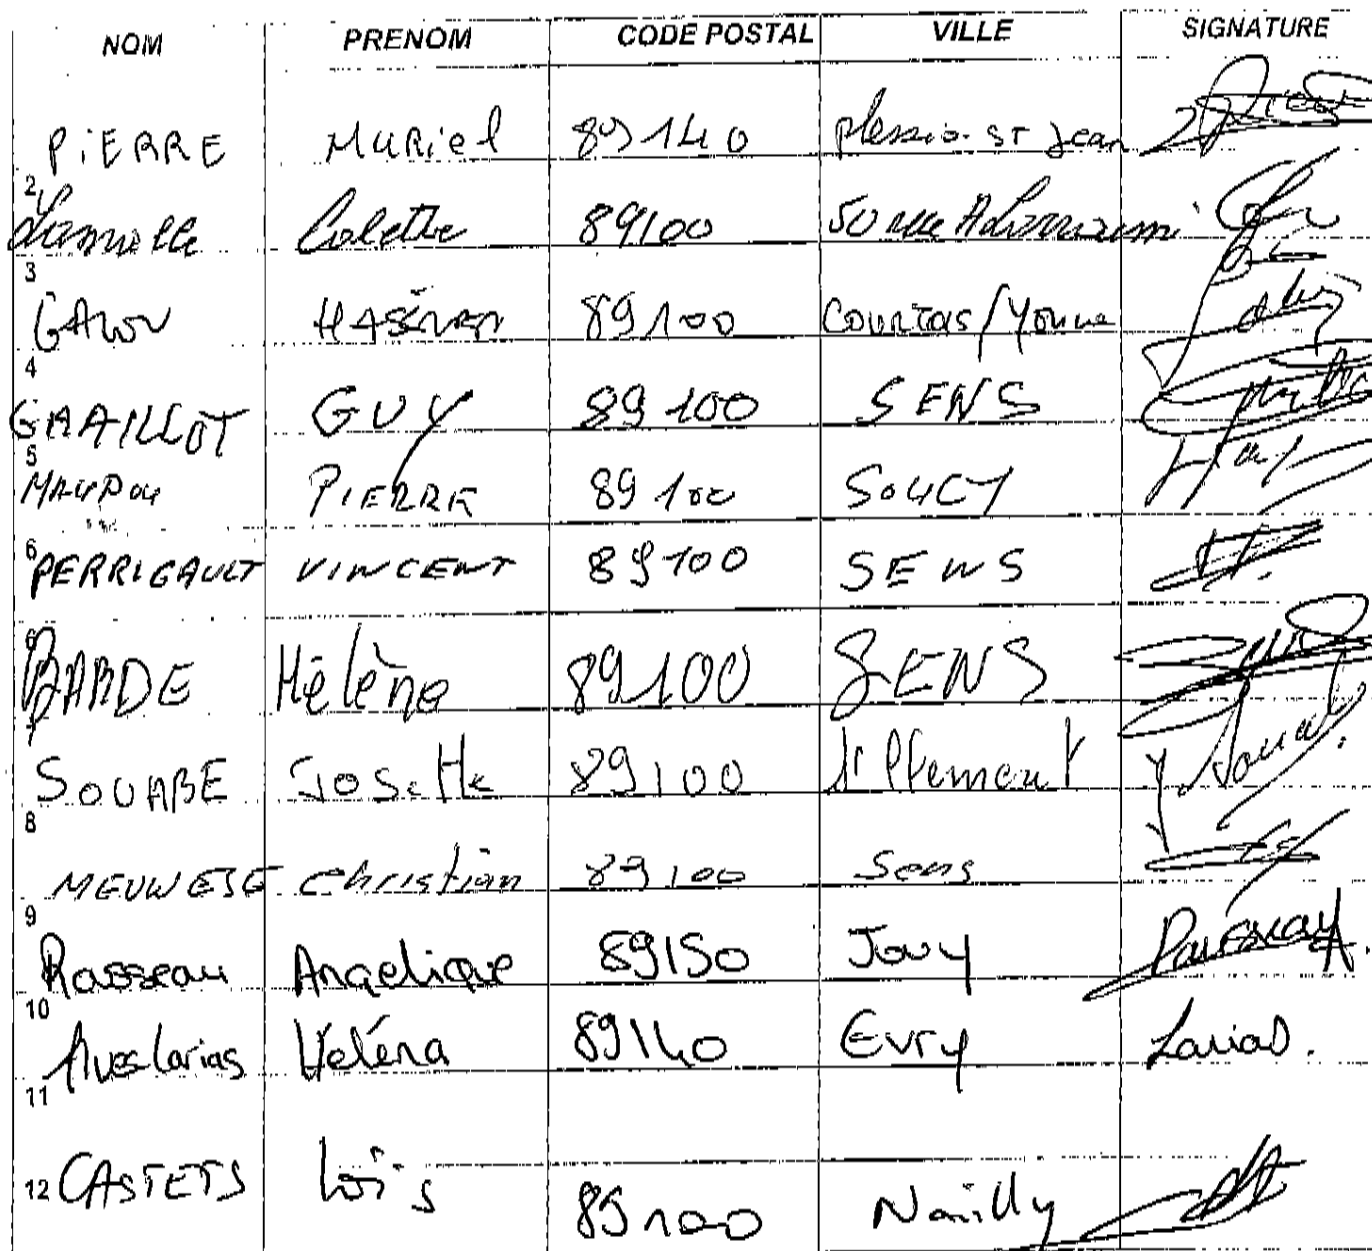 NOM PRENOM CODE POSTAL VILLE SIGNATURE
PIERRE Muriel 89140 plessis-st Jean
2 Colette 89100 50 rue
3 89100 Courtois/Yonne
4 GRAILLOT GUY 89100 SENS
5 MAUPOU PIERRE 89100 SOUCY
6 PERRIGAULT VINCENT 89100 SENS
6 BARDE Hélène 89100 SENS
7 SOUABE Josette 89100
8 MEUWESE Christian 89100 Sens
9 Rosseau Angelique 89150 Jouy
10 Alves larias Héléna 89140 Evry Larias.
11
12 CASTETS Loïs 89100 Nailly